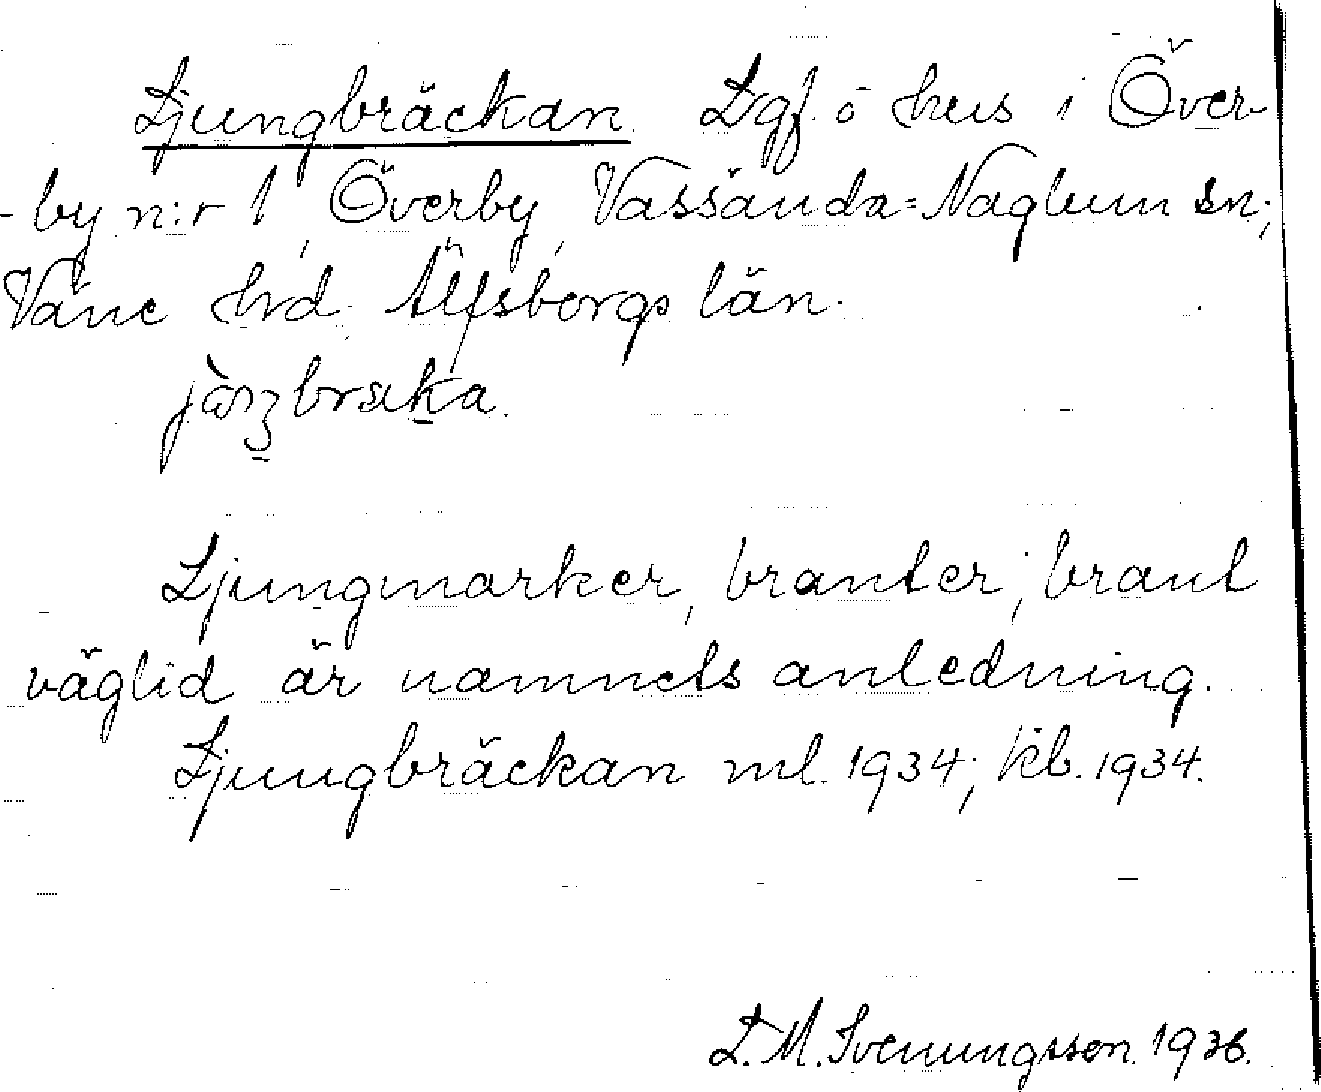 Ljungbräckan. Lgf. o hus i Över-
-by n:r 1, Överby, Vassända=Naglum sn;
Väne hrd. Älfsborgs län.
Ljungmarker, branter; brant
väglid är namnets anledning.
Ljungbräckan ml. 1934; kb. 1934.
L. M. Svenungsson. 1936.